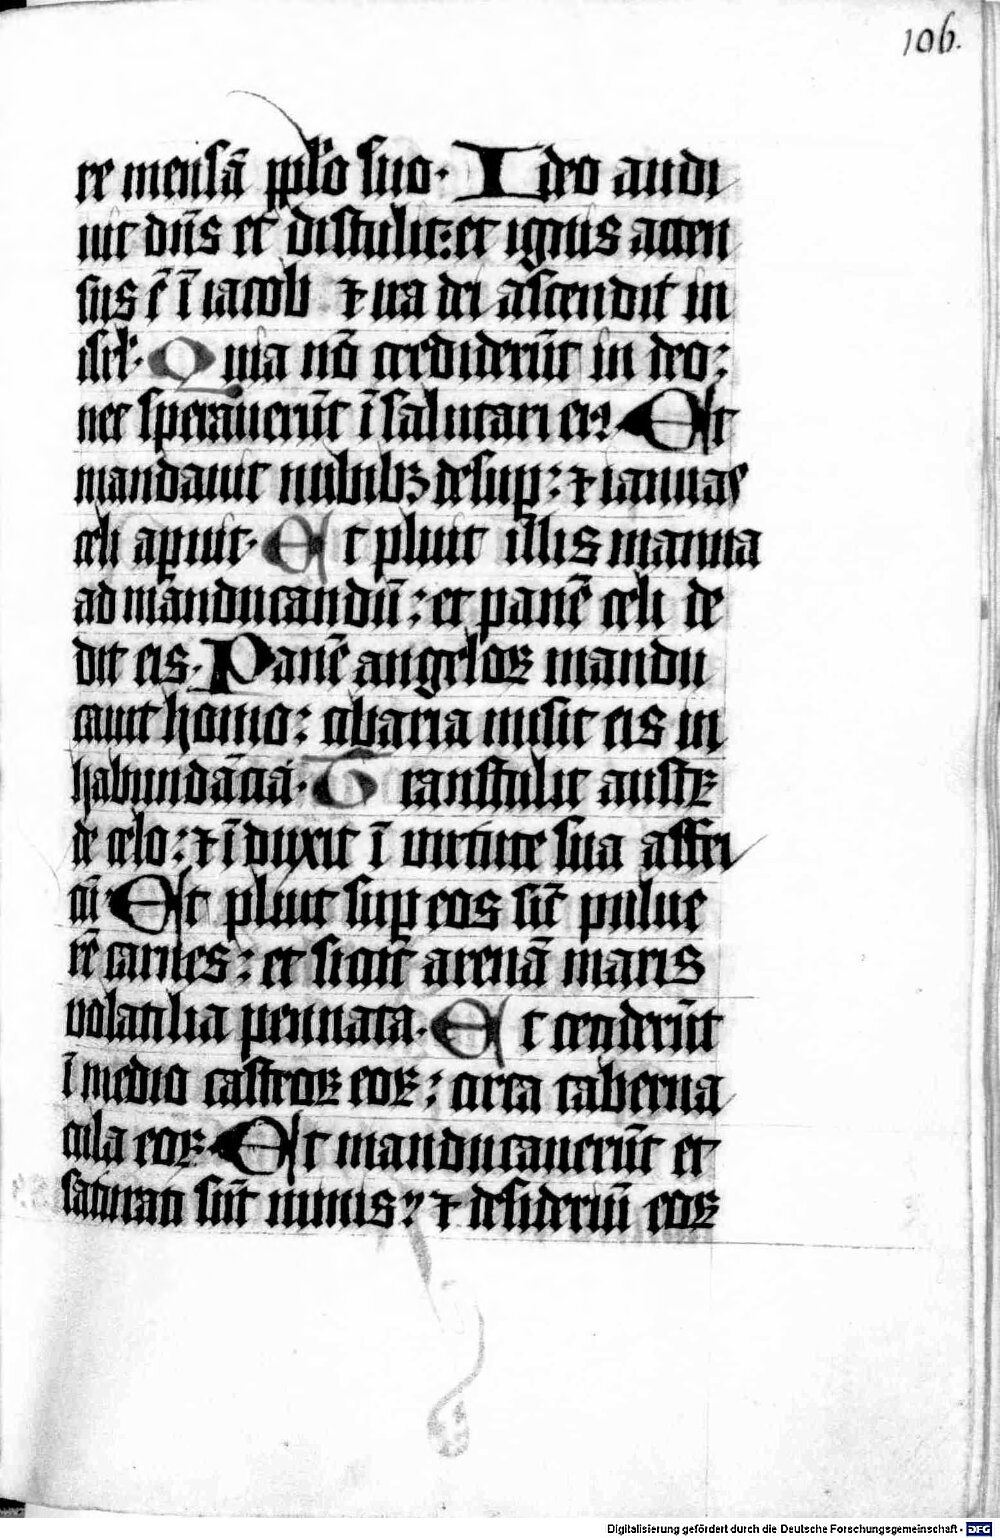 106.
re mensā pplo suo. Ideo audi
uit dn̄s et distulit: et ignis accen
sus ē ī iacob ⁊ ira dei ascendit in
isrl̄. Quia nō crediderūt in deo:
nec sperauerūt ī salutari ei⁹. Et
mandauit nubibꝫ desup: ⁊ ianuas
celi apuit. Et pluit illis manna
ad manducandū: et panē celi de
dit eis. Panē angeloꝝ mandu
cauit homo: cibaria misit eis in
habundācia. Transtulit austꝝ
de celo: ⁊ īduxit ī virtute sua affri
cū. Et pluit sup eos sic̄ pulue
rē carnes: et sicut̄ arenā maris
volatilia pennata. Et ceciderūt
ī medio castroꝝ eoꝝ: circa taberna
cula eoꝝ. Et manducauerūt et
saturati sūt nimis: ⁊ desideriū eoꝝ
Digitalisierung gefördert durch die Deutsche Forschungsgemeinschaft - DFG